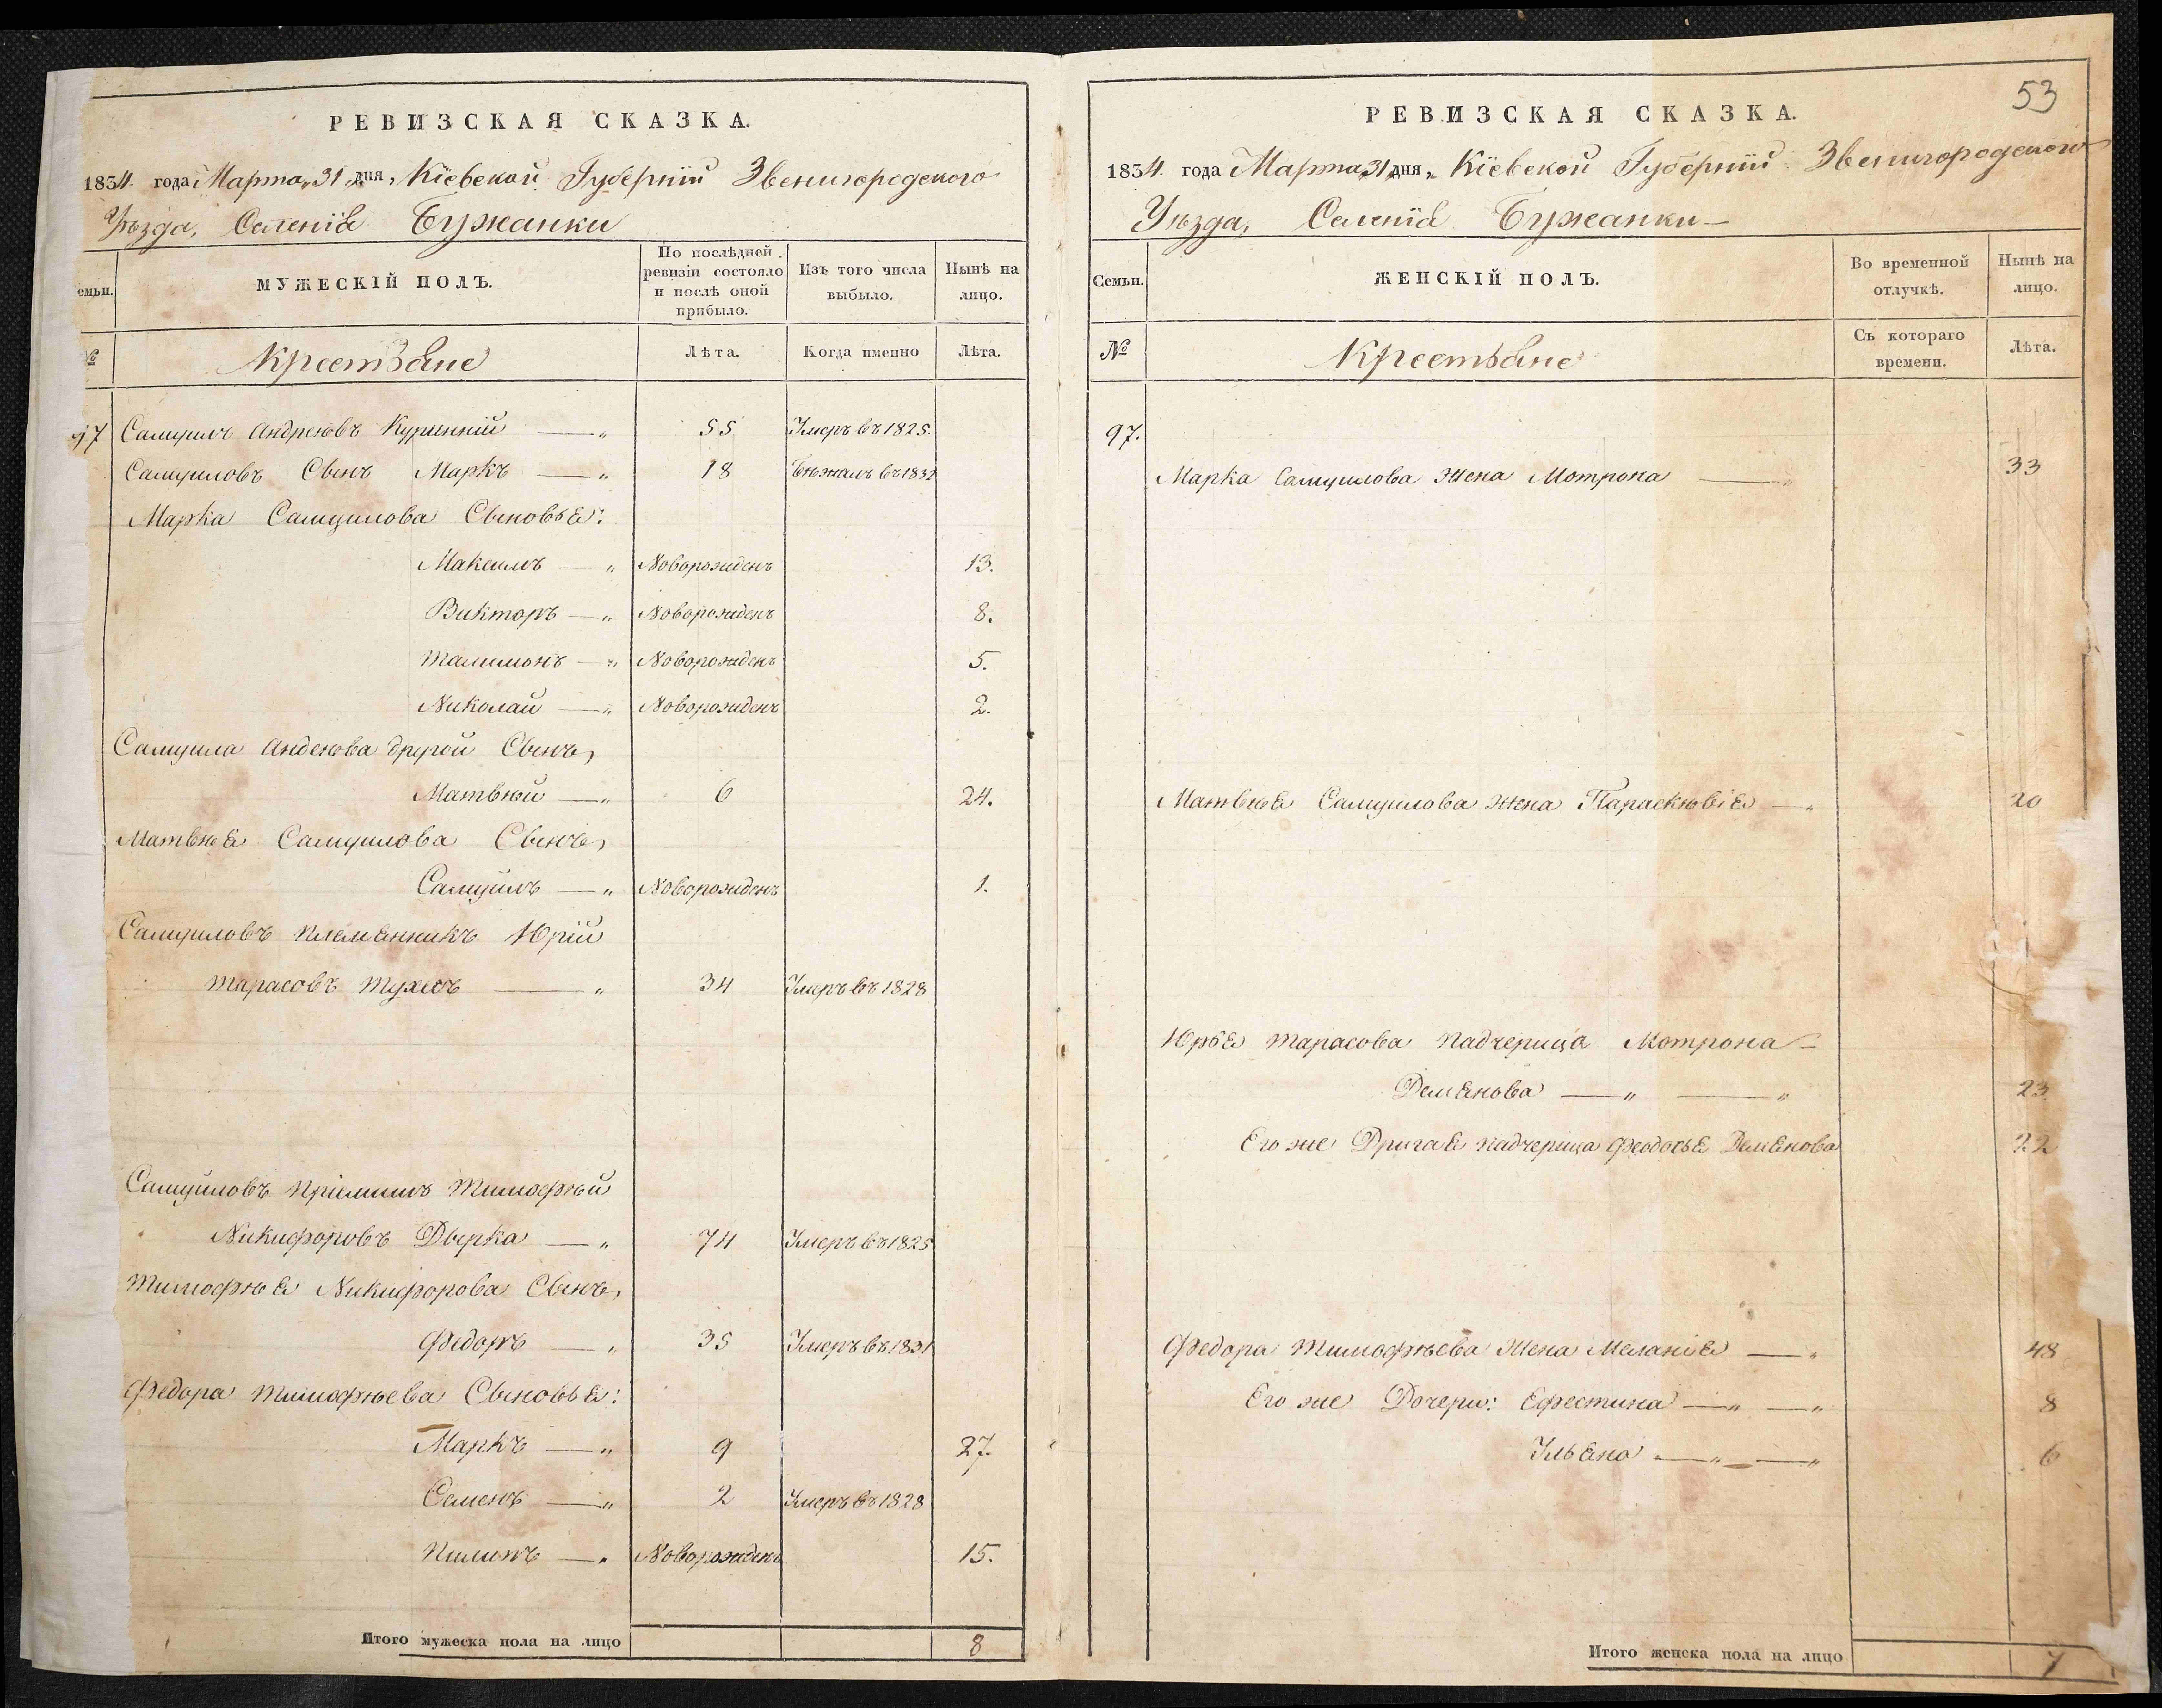 РЕВИЗСКАЯ СКАЗКА.
1834. года Марта „31„ дня, Кіевской Губерніи Звенигородского
Уѣзда, Селенія Бужанки
емьи.
МУЖЕСКІЙ ПОЛЪ.
По послѣдней ревизіи состояло и послѣ оной прибыло.
Изъ того числа выбыло.
Нынѣ на лицо.
№
Крестьяне
Лѣта.
Когда именно
Лѣта.
97 Самуилъ Андреевъ Куринній —„ 55 Умеръ въ 1825.
Самуиловъ Сынъ Маркъ —„ 18 Бѣжалъ въ 1832
Марка Самуилова Сыновья:
Максимъ —„ Новорожденъ 13.
Викторъ —„ Новорожденъ 8.
Талимонъ —„ Новорожденъ 5.
Николай —„ Новорожденъ 2.
Самуила Андеѣва другой Сынъ,
Матвѣй —„ 6 24.
Матвѣя Самуилова Сынъ,
Самуилъ —„ Новорожденъ 1.
Самуиловъ племянникъ Юрій
Тарасовъ —„ 34 Умеръ въ 1828
Самуиловъ пріемышъ Тимофѣй
Никифоровъ Дырка —„ 74 Умеръ въ 1825
Тимофѣя Никифорова Сынъ,
Федоръ —„ 35 Умеръ въ 1831
Федора Тимофѣева Сыновья:
Маркъ —„ 9 27.
Семенъ —„ 2 Умеръ въ 1828
Пилипъ —„ Новорожденъ 15.
Итого мужеска пола на лицо 8
53
РЕВИЗСКАЯ СКАЗКА.
1834. года Марта „31„ дня„ Кіевской Губерніи Звенигородского
Уѣзда, Селенія Бужанки—
Семьи.
ЖЕНСКІЙ ПОЛЪ.
Во временной отлучкѣ.
Нынѣ на лицо.
№
Крестьяне
Съ котораго времени.
Лѣта.
97.
Марка Самуилова жена Мотрона —„ 33
Матвѣя Самуилова жена Параскѣвія —„ 20
Юрья Тарасова падчерица Мотрона—
Демянова —„ —„ 23
Его же Другая падчерица Феодосья Демянова 22
Федора Тимофѣева Жена Меланія —„ 48
Его же Дочери: Ефестина —„ —„ 8
Ульяна —„ —„ 6
Итого женска пола на лицо 7